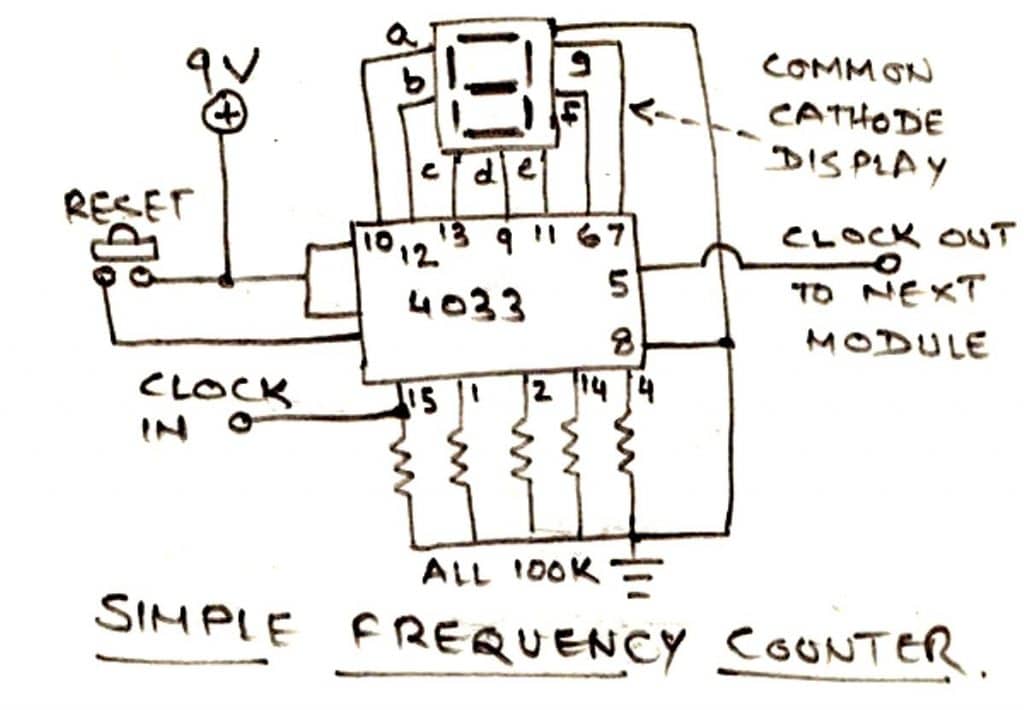 9V
+
RESET
a
b
c
d
e
f
g
COMMON
CATHODE
DISPLAY
10 12 13 9 11 6 7
4033
5
8
CLOCK OUT
TO NEXT
MODULE
CLOCK
IN
15 1 2 14 4
ALL 100K
SIMPLE FREQUENCY COUNTER.